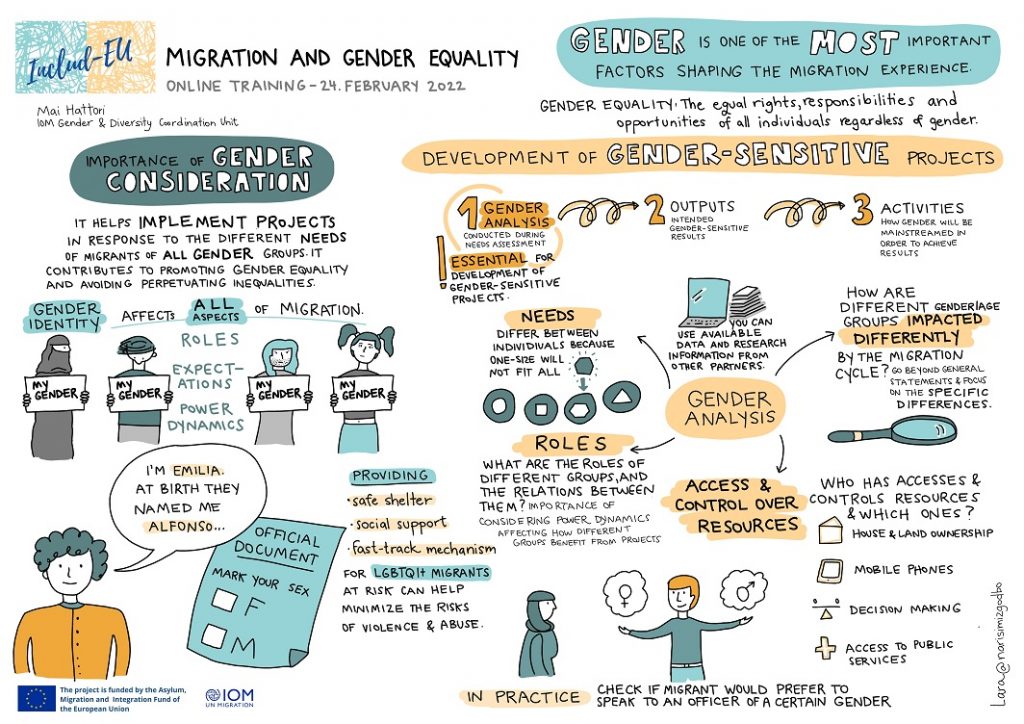 Includ-EU
MIGRATION AND GENDER EQUALITY
ONLINE TRAINING - 24. FEBRUARY 2022
Mai Hattori
IOM Gender & Diversity Coordination Unit
GENDER IS ONE OF THE MOST IMPORTANT
FACTORS SHAPING THE MIGRATION EXPERIENCE.
GENDER EQUALITY: The equal rights, responsibilities and
opportunities of all individuals regardless of gender.
IMPORTANCE OF GENDER
CONSIDERATION
IT HELPS IMPLEMENT PROJECTS
IN RESPONSE TO THE DIFFERENT NEEDS
OF MIGRANTS OF ALL GENDER GROUPS. IT
CONTRIBUTES TO PROMOTING GENDER EQUALITY
AND AVOIDING PERPETUATING INEQUALITIES.
GENDER
IDENTITY
AFFECTS ALL
ASPECTS
OF MIGRATION.
ROLES
EXPECT-
ATIONS
POWER
DYNAMICS
MY
GENDER
MY
GENDER
MY
GENDER
MY
GENDER
I'M EMILIA.
AT BIRTH THEY
NAMED ME
ALFONSO...
OFFICIAL
DOCUMENT
MARK YOUR SEX
F
M
PROVIDING
• safe shelter
• social support
• fast-track mechanism
FOR LGBTQI+ MIGRANTS
AT RISK CAN HELP
MINIMIZE THE RISKS
OF VIOLENCE & ABUSE.
DEVELOPMENT OF GENDER-SENSITIVE PROJECTS
1 GENDER
ANALYSIS
CONDUCTED DURING
NEEDS ASSESSMENT
! ESSENTIAL FOR
DEVELOPMENT OF
GENDER-SENSITIVE
PROJECTS.
2 OUTPUTS
INTENDED
GENDER-SENSITIVE
RESULTS
3 ACTIVITIES
HOW GENDER WILL BE
MAINSTREAMED IN
ORDER TO ACHIEVE
RESULTS
NEEDS
DIFFER BETWEEN
INDIVIDUALS BECAUSE
ONE-SIZE WILL
NOT FIT ALL
YOU CAN
USE AVAILABLE
DATA AND RESEARCH
INFORMATION FROM
OTHER PARTNERS.
HOW ARE
DIFFERENT GENDER/AGE
GROUPS IMPACTED
DIFFERENTLY
BY THE MIGRATION
CYCLE? GO BEYOND GENERAL
STATEMENTS & FOCUS
ON THE SPECIFIC
DIFFERENCES.
GENDER
ANALYSIS
ROLES
WHAT ARE THE ROLES OF
DIFFERENT GROUPS, AND
THE RELATIONS BETWEEN
THEM? IMPORTANCE OF
CONSIDERING POWER DYNAMICS
AFFECTING HOW DIFFERENT
GROUPS BENEFIT FROM PROJECTS
ACCESS &
CONTROL OVER
RESOURCES
WHO HAS ACCESSES &
CONTROLS RESOURCES
& WHICH ONES?
HOUSE & LAND OWNERSHIP
MOBILE PHONES
DECISION MAKING
ACCESS TO PUBLIC
SERVICES
IN PRACTICE
CHECK IF MIGRANT WOULD PREFER TO
SPEAK TO AN OFFICER OF A CERTAIN GENDER
Lara@narisimizgodbo
The project is funded by the Asylum,
Migration and Integration Fund of
the European Union
IOM
UN MIGRATION